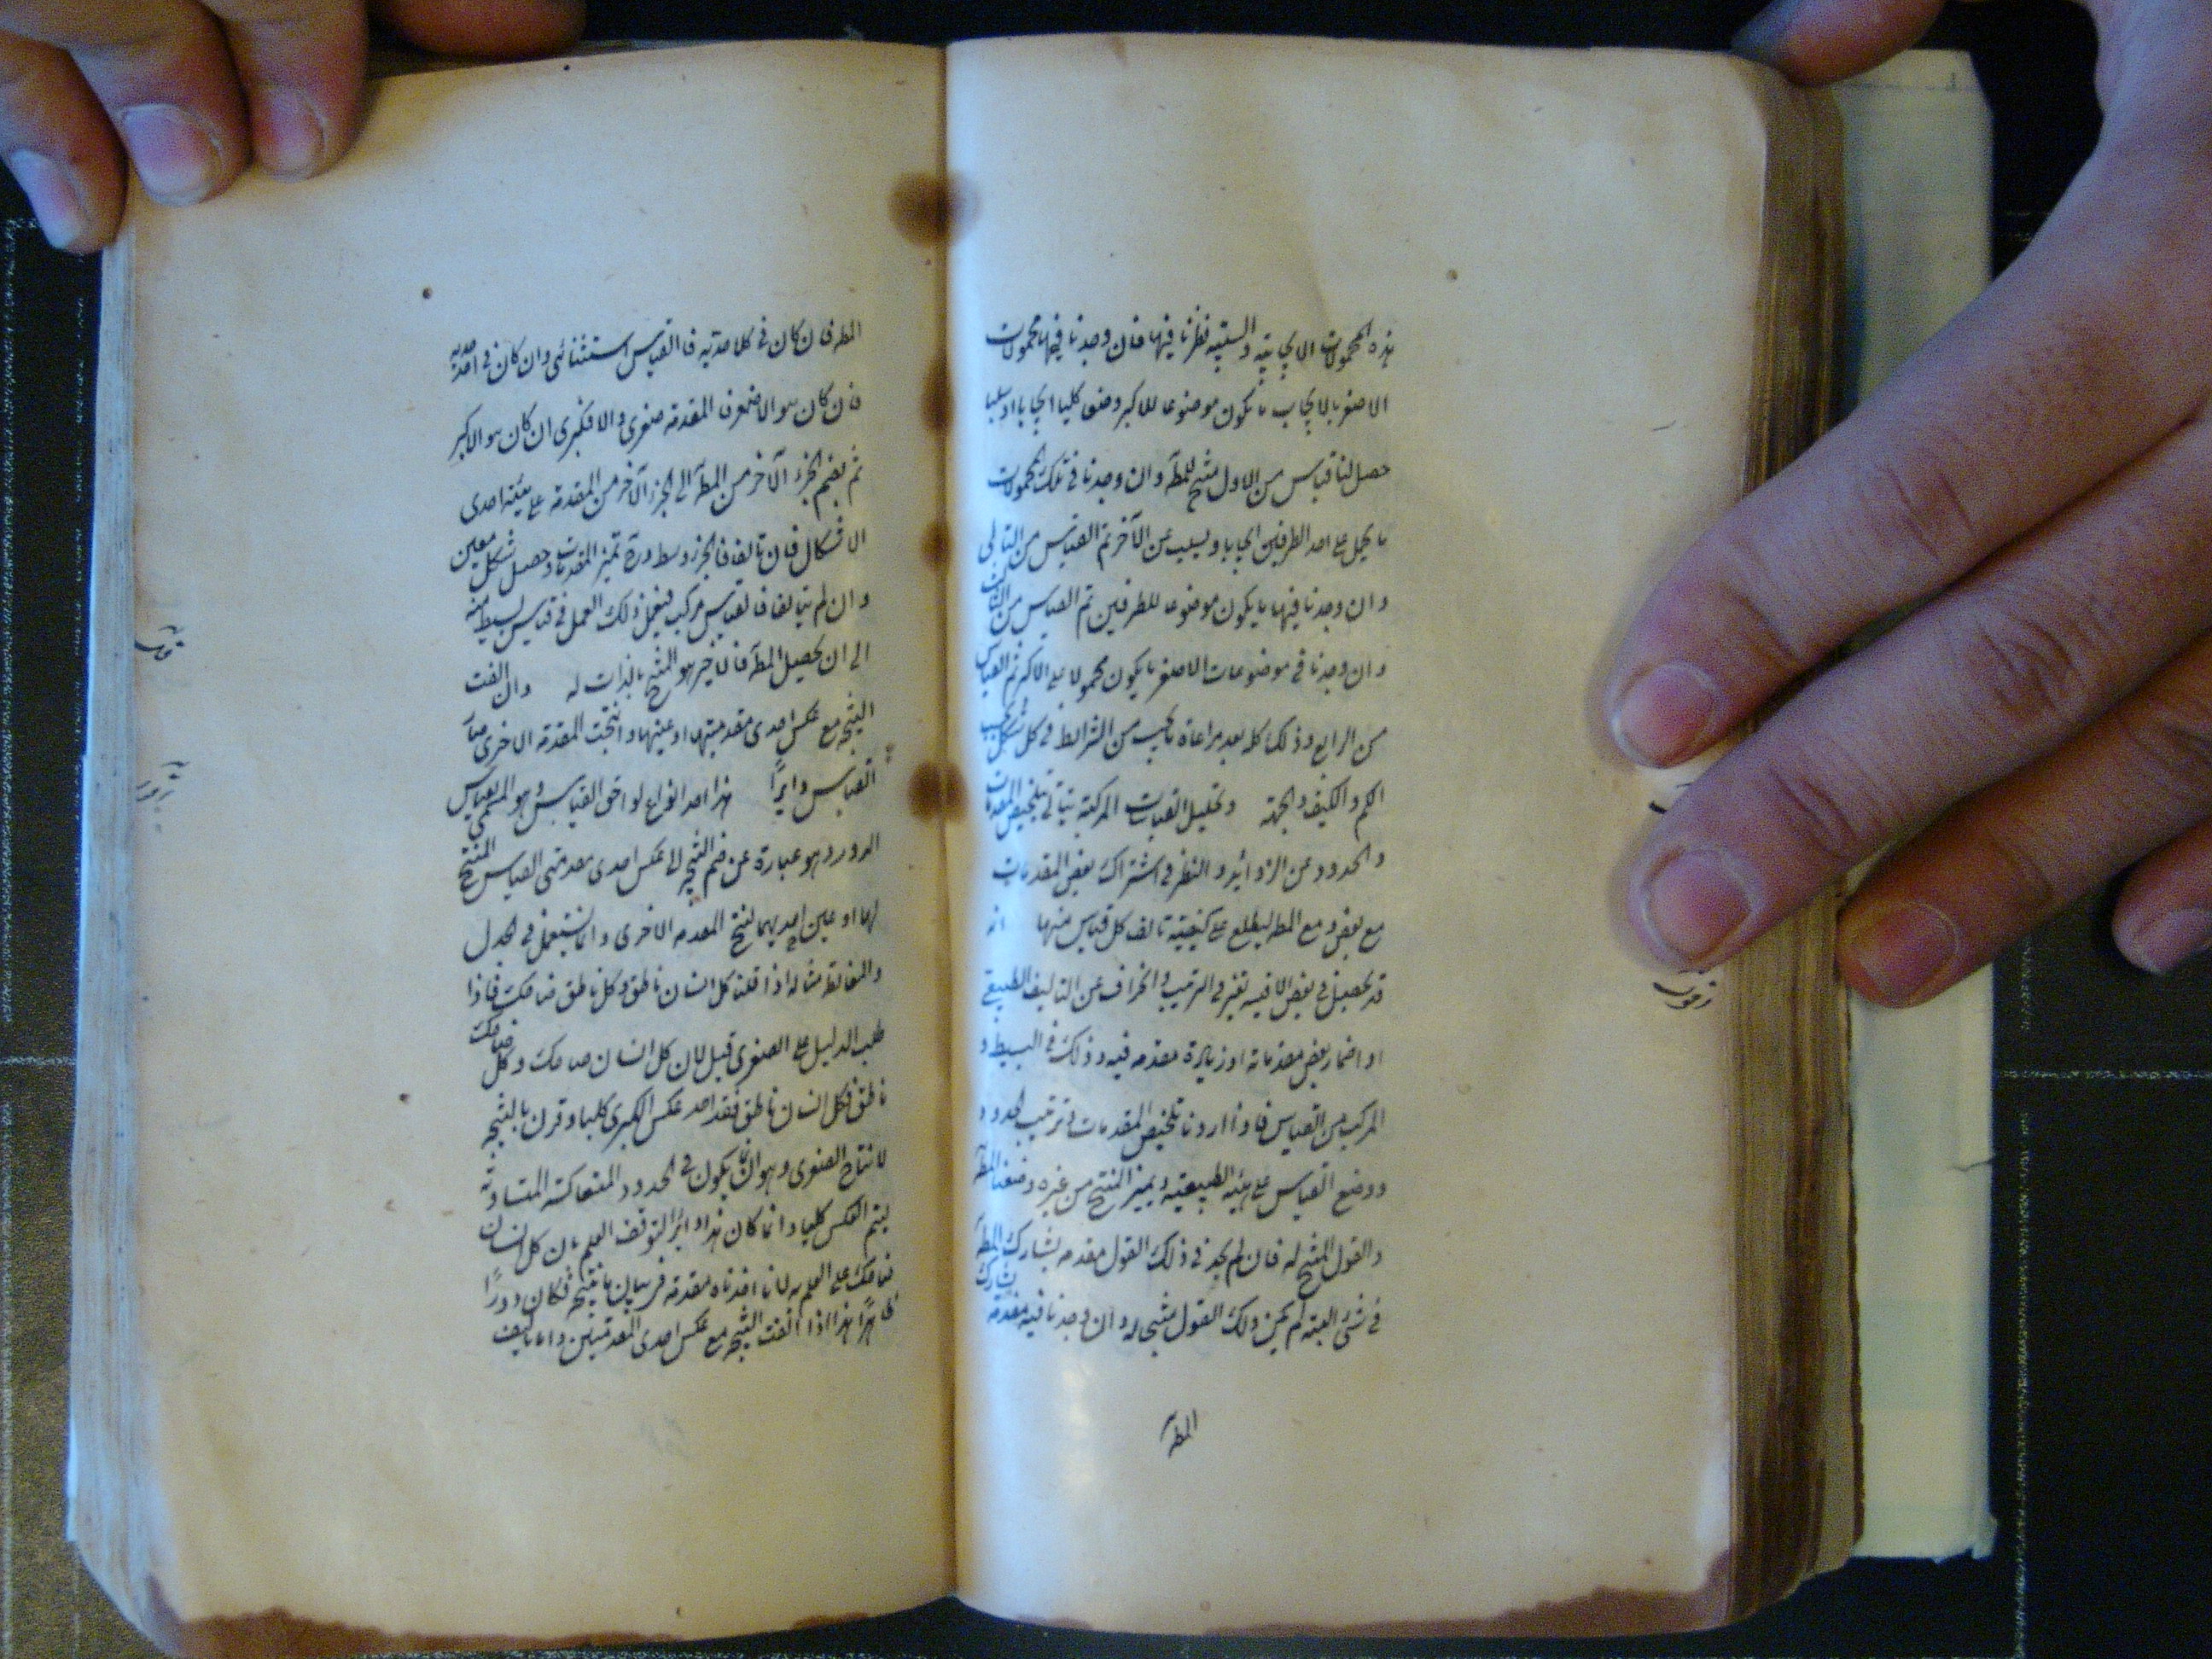 هذه المحمولات الايجابية والسلبية نظرنا فيها فان وجدنا فيها محمولات
الاصغر بالايجاب ما يكون موضوعا للاكبر وضعا كليا ايجابا او سلبا
حصل لنا قياس من الاول منتج للمط وان وجدنا في تلك المحمولات
ما يحمل على احد الطرفين ايجابا ويسلب عن الآخر تم القياس من الثاني
وان وجدنا فيها ما يكون موضوعا للطرفين تم القياس من الثالث
وان وجدنا في موضوعات الاصغر ما يكون محمولا على الاكبر تم القياس
من الرابع وذلك كله بعد مراعاة ما يجب من الشرائط في كل شكل بحسب
الكم والكيف والجهة وتحليل القياسات المركبة يتأتى بتلخيص المقدمات
والحدود عن الزوائد والنظر في اشتراك بعض المقدمات
مع بعض ومع المط ليطلع على كيفية تالف كل قياس منها انه
قد يحصل في بعض الاقيسه تغير في الترتيب وانحراف عن التاليف الطبيعي
او اضمار بعض مقدماته او زيادة مقدمه فيه وذلك في البسيط و
المركب من القياس فاذا اردنا تلخيص المقدمات وترتيب الحدود
ووضع القياس على هيئه الطبيعية وتمييز المنتج من غيره وضعنا المط
والقول المنتج له فان لم نجد في ذلك القول مقدمه تشارك المط
في شئ البتة لم يكن ذلك القول منتجا له وان وجدنا فيه مقدمة تشارك
المط
المط فان كان في كلا حديه فالقياس استثنائي وان كان في احد حديه
فان كان هو الاصغر فالمقدمة صغرى والا فكبرى ان كان هو الاكبر
ثم يضم الجزء الآخر من المط الى الجزء الآخر من المقدمة على هيئة احدى
الاشكال فان تالفا فالجزء وسط وتميز المقدمات وحصل شكل معين
وان لم يتالفا فالقياس مركب فيعمل ذلك العمل في قياس بسيط منه
الى ان يحصل المط فالاخير هو المنتج بالذات له وان الفت
النتيجة مع عكس احدى مقدمتيها او عينها وانتجت المقدمة الاخرى صار
القياس دايرًا هذا احد انواع لواحق القياس وهو المسمى بقياس
الدور وهو عبارة عن ضم النتيجة الى عكس احدى مقدمتي القياس المنتج
لها او عين احديهما لينتج المقدمه الاخرى وانما يستعمل في الجدل
والمغالطة مثاله اذا قلنا كل انسان ناطق وكل ناطق ضاحك فاذا
طلب الدليل على الصغرى قيل لان كل انسان ضاحك وكل ضاحك
ناطق فكل انسان ناطق فقد اخذ عكس الكبرى كليا وقرن بالنتيجة
لانتاج الصغرى وهو انما يكون في الحدود المتعاكسة المتساوية
ليتم العكس كليا وانما كان هذا دائرا لتوقف العلم بان كل انسان
ضاحك على العلم به لانا اخذناه مقدمة في بيان ما ينتجه فكان دورًا
ظاهرًا هذا اذا الفت النتيجة مع عكس احدى المقدمتين واما تاليف